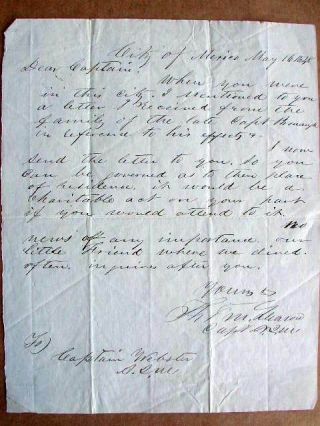 City of Mexico May 16 1848
Dear Captain,
When you were
in this city. I mentioned to you
a letter I received from the
family of the late Capt
in reference to his effects
I now
send the letter to you. So you
can be governed as to their place
of residence. it would be a
Charitable act on your part
if you would attend to it. no
news of any importance our
little Friend where we dined.
often inquires after you.
Yours
Capt
To)
Captain Webster